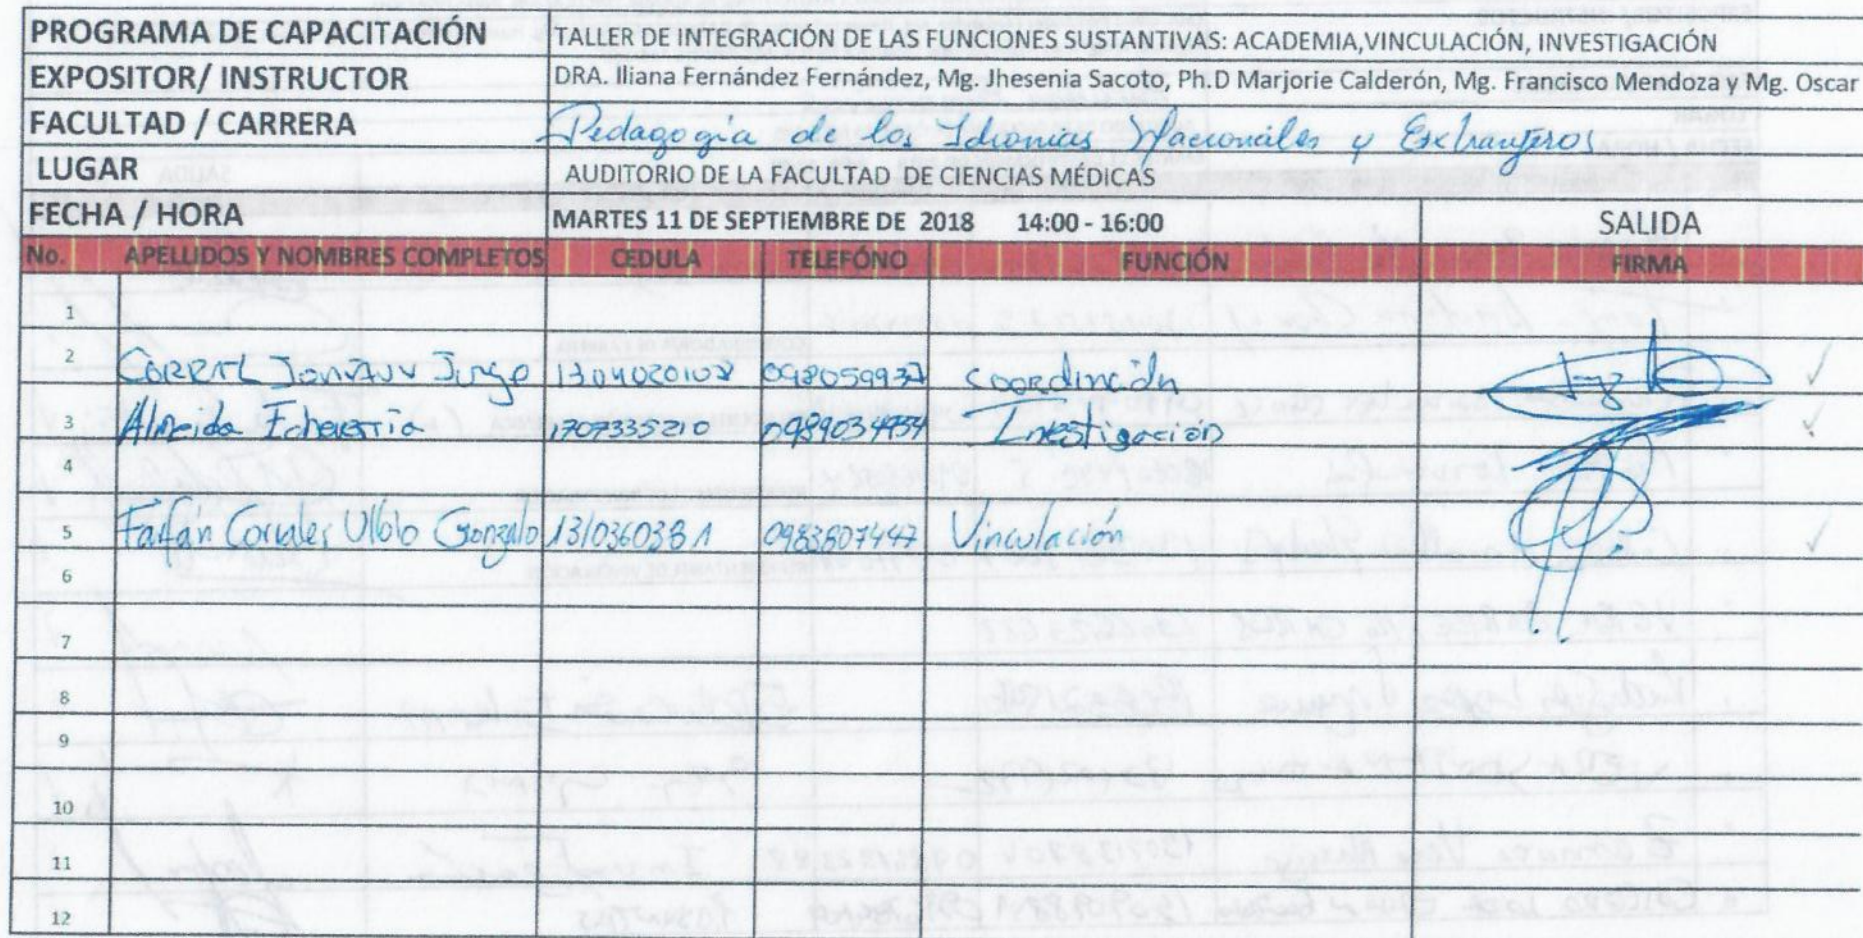 PROGRAMA DE CAPACITACIÓN TALLER DE INTEGRACIÓN DE LAS FUNCIONES SUSTANTIVAS: ACADEMIA,VINCULACIÓN, INVESTIGACIÓN
EXPOSITOR/ INSTRUCTOR DRA. Iliana Fernández Fernández, Mg. Jhesenia Sacoto, Ph.D Marjorie Calderón, Mg. Francisco Mendoza y Mg. Oscar
FACULTAD / CARRERA Pedagogía de los Idiomas Nacionales y Extranjeros
LUGAR AUDITORIO DE LA FACULTAD DE CIENCIAS MÉDICAS
FECHA / HORA MARTES 11 DE SEPTIEMBRE DE 2018 14:00 - 16:00 SALIDA
No. APELLIDOS Y NOMBRES COMPLETOS CEDULA TELEFÓNO FUNCIÓN FIRMA
1
2 Coordinación
3 Almeida Echeverria 1707335210 Investigación
4
5 Farfán Corrales Gonzalo 1310360381 0983807447 Vinculación
6
7
8
9
10
11
12